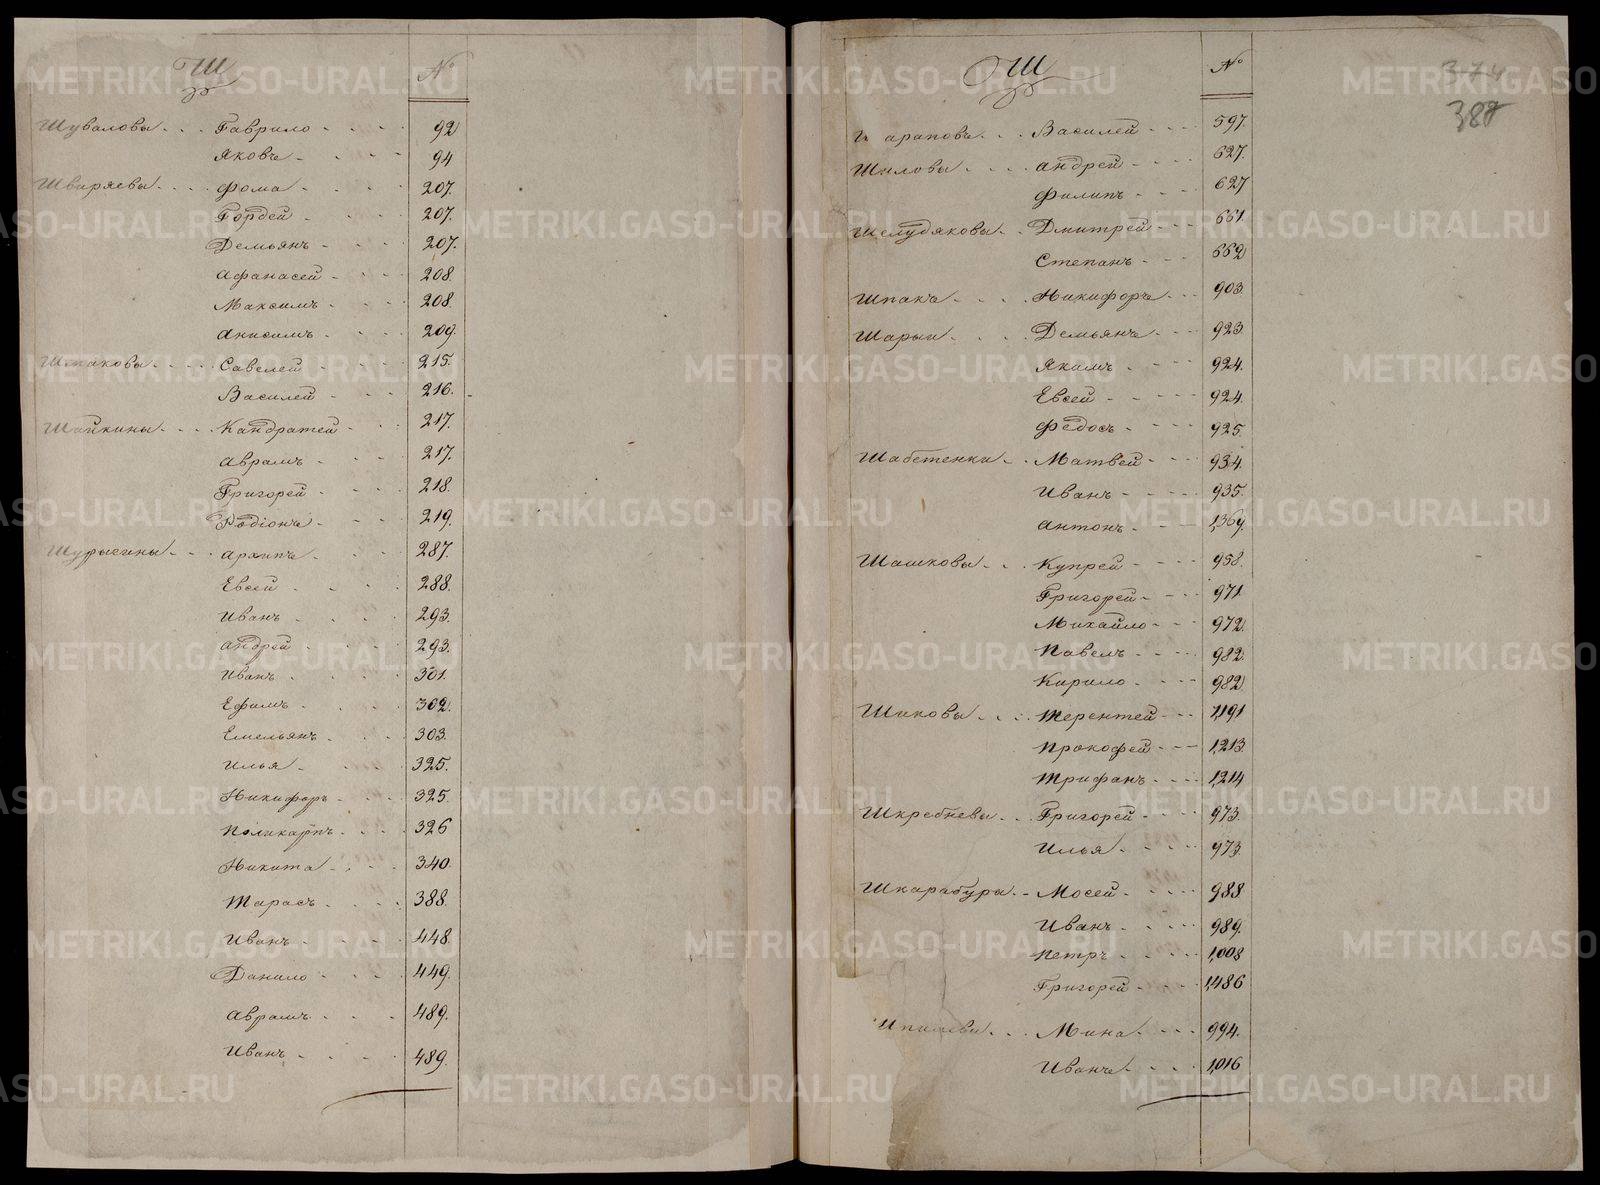 Ш №
Шуваловы Гаврило 92
Яковъ 94
Шваряевы Фома 207.
Гордей 207.
Демьянъ 207.
Афанасей 208
Максимъ 208
Анисимъ 209.
Шмаковы Савелей 215.
Василей 216.
Шайкины Кандратей 217.
Аврамъ 217.
Григорей 218.
Родіонъ 219.
Архипъ 287.
Евсей 288.
Иванъ 293.
Андрей 293.
Иванъ 301.
Ефимъ 302.
Емельянъ 303.
Илья 325.
Никифоръ 325.
Поликарпъ 326
Никита 340.
Тарасъ 388.
Иванъ 448.
Данило 449.
Аврамъ 489.
Иванъ 489.
Ш №
374
388
араповъ Василей 597.
Шиловы Андрей 627.
Филипъ 627
Шелудяковы Дмитрей 661.
Степанъ 662
Шпакъ Никифоръ 903.
Шарыи Демьянъ 923.
Якимъ 924.
Евсей 924.
Федосъ 925.
Шабетенки Матвей 934.
Иванъ 935.
Антонъ 1,369.
Шашковы Купрей 958.
Григорей 971
Михайло 972.
Павелъ 982.
Кирило 982
Шиковы Терентей 1,191
Прокофей 1,213
Трифанъ 1,214
Шкребневы Григорей 973.
Илья 973.
Шкарабуры Мосей 988.
Иванъ 989.
Петръ 1,008
Григорей 1,486
Мина 994.
Иванъ 1,016
METRIKI.GASO-URAL.RU